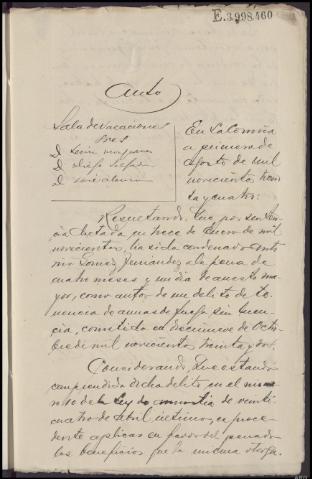 E.3998.460
Auto
Sala de vacaciones
Sres
D.
D. Diego
D. José
En La Coruña
a primero de
agosto de mil
novecientos trein
ta y cuatro:
Resultando: Que por senten
cia dictada en trece de Enero de mil
novecientos, ha sido condenado
Gomez Fernandez a la pena de
cuatro meses y un dia de arresto ma
yor, como autor de un delito de te
nencia de armas de fuego sin licen
cia, cometido en diecinueve de Octu
bre de mil novecientos treinta y dos.
Considerando: Que estando
comprendido dicho delito en el
de la Ley de amnistia de veinti
cuatro de Abril ultimo, es proce
dente aplicar en favor del penado
los beneficios que la misma otorga.